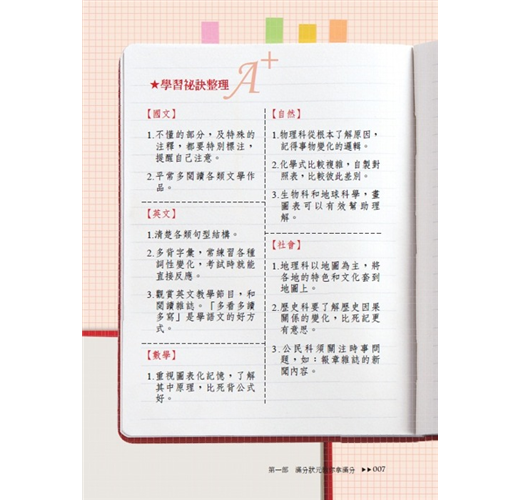 ★學習祕訣整理 A+
【國文】
1.不懂的部分，及特殊的
注釋，都要特別標注，
提醒自己注意。
2.平常多閱讀各類文學作
品。
【英文】
1.清楚各類句型結構。
2.多背字彙，常練習各種
詞性變化，考試時就能
直接反應。
3.觀賞英文教學節目，和
閱讀雜誌。「多看多讀
多寫」是學語文的好方
式。
【數學】
1.重視圖表化記憶，了解
其中原理，比死背公式
好。
【自然】
1.物理科從根本了解原因，
記得事物變化的邏輯。
2.化學式比較複雜，自製對
照表，比較彼此差別。
3.生物科和地球科學，畫
圖表可以有效幫助理
解。
【社會】
1.地理科以地圖為主，將
各地的特色和文化套到
地圖上。
2.歷史科要了解歷史因果
關係的變化，比死記更
有意思。
3.公民科須關注時事問
題，如：報章雜誌的新
聞內容。
第一部 滿分狀元教你拿滿分 ▶▶007